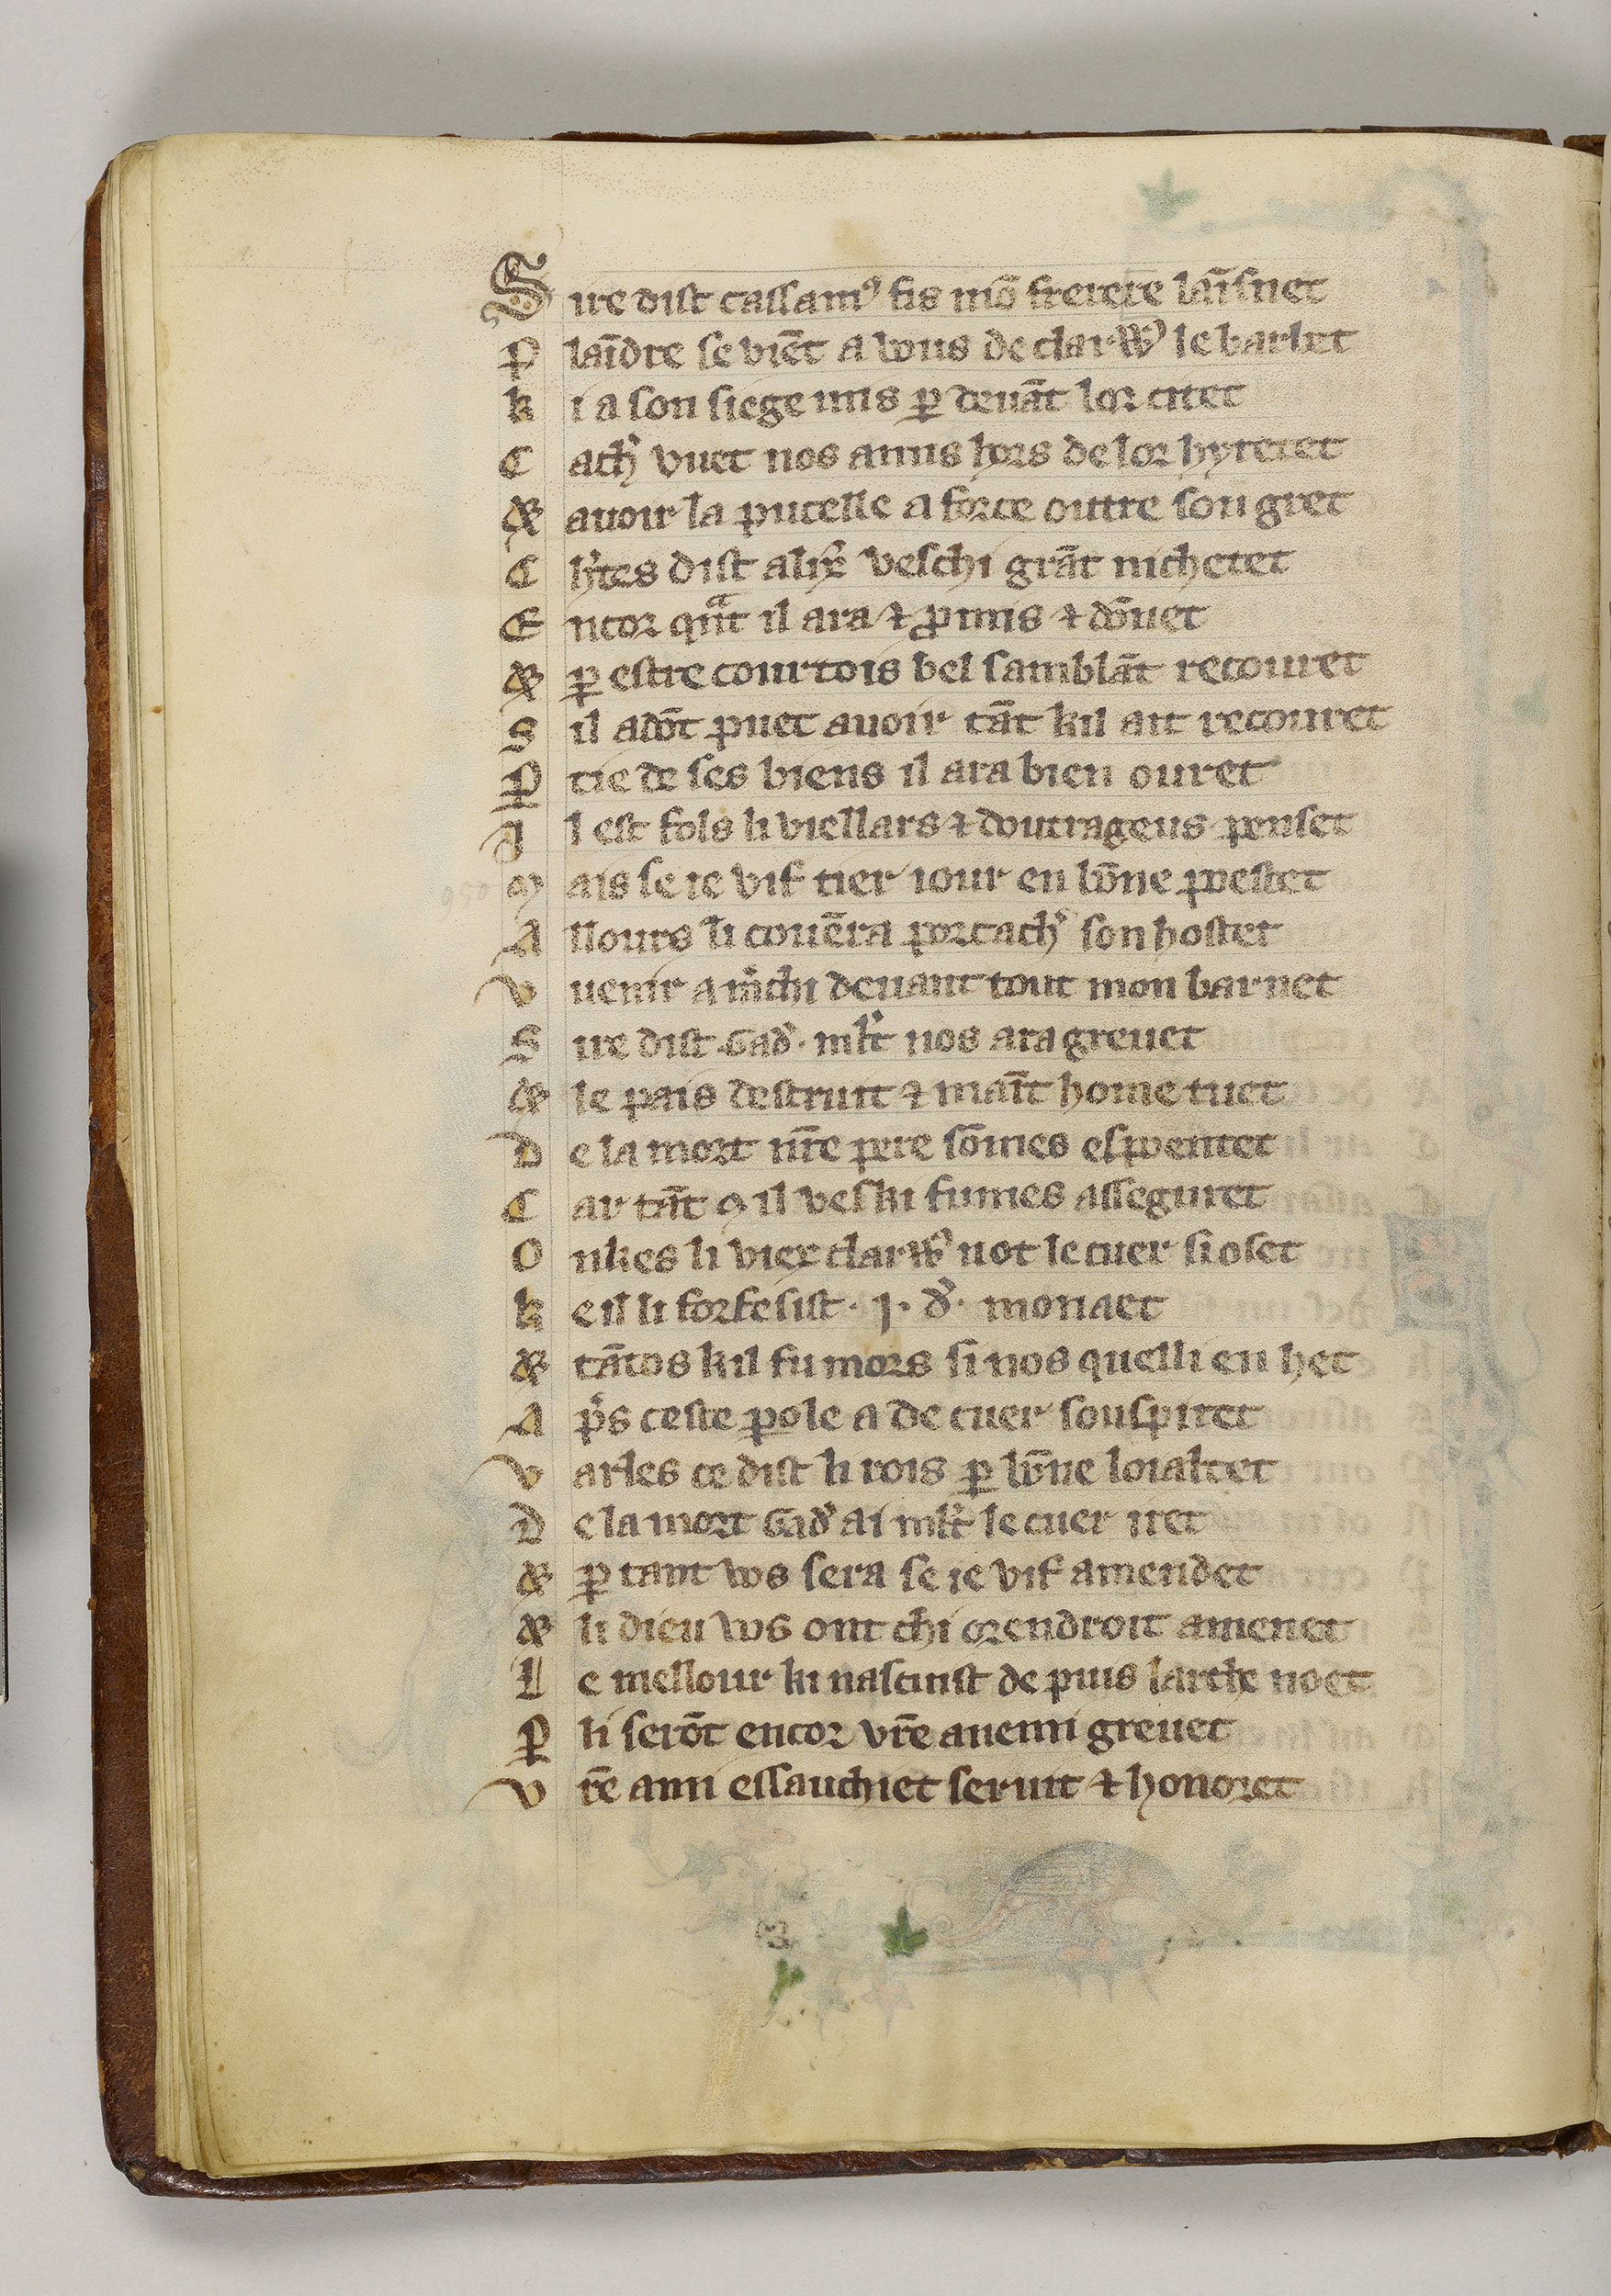 Sire dist cassamꝰ fis mō frerere laīsnet
Plaīdre se viēt a vous de clarꝟ le barbet
ki a son siege mis ꝑ deuāt lor citet
Cachꝰ vuet nos amis hors de lor hyretet
& auoir la pucelle a force outre son gret
Chꝰtes dist alixꝰ veschi grāt nichetet
Encor qͣnt il ara ⁊ ꝓmis ⁊ dōnet
& ꝑ estre courtois bel samblāt recouret
Sil adōt puet auoir tāt kil ait recouret
Ꝑtie de ses biens il ara bien ouret
Il est fols li viellars ⁊ doutrageus penset
Mais se ie vif tier iour en bōne poestet
Allours li couēra porcachꝰ son hostet
V uenir a mꝰchi deuant tout mon barnet
Sire dist .Gadꝰ. mlꝰt nos ara greuet
& le pais destruit ⁊ maīt home tuet
De la mort nr̄e pere sōmes espoentet
Car tāt ꝯ il veski fumes asseguret
Onkes li viex clarꝟ not le cuer si oset
ke il li forfesist .j. dꝰ. monaet
& tātos kil fu mors si nos quelli en het
Apꝰs ceste ꝑole a de cuer souspiret
Varles ce dist li rois ꝑ bōne loialtet
De la mort Gadꝰ ai mlꝰt le cuer iret
& ꝑ tant vos sera se ie vif amendet
& li dieu vos ont chi orendroit amenet
Le mellour ki nascuist de puis larche noet
Ꝑ li serōt encor vr̄e anemi greuet
Vr̄e ami essauchiet seruit ⁊ honoret